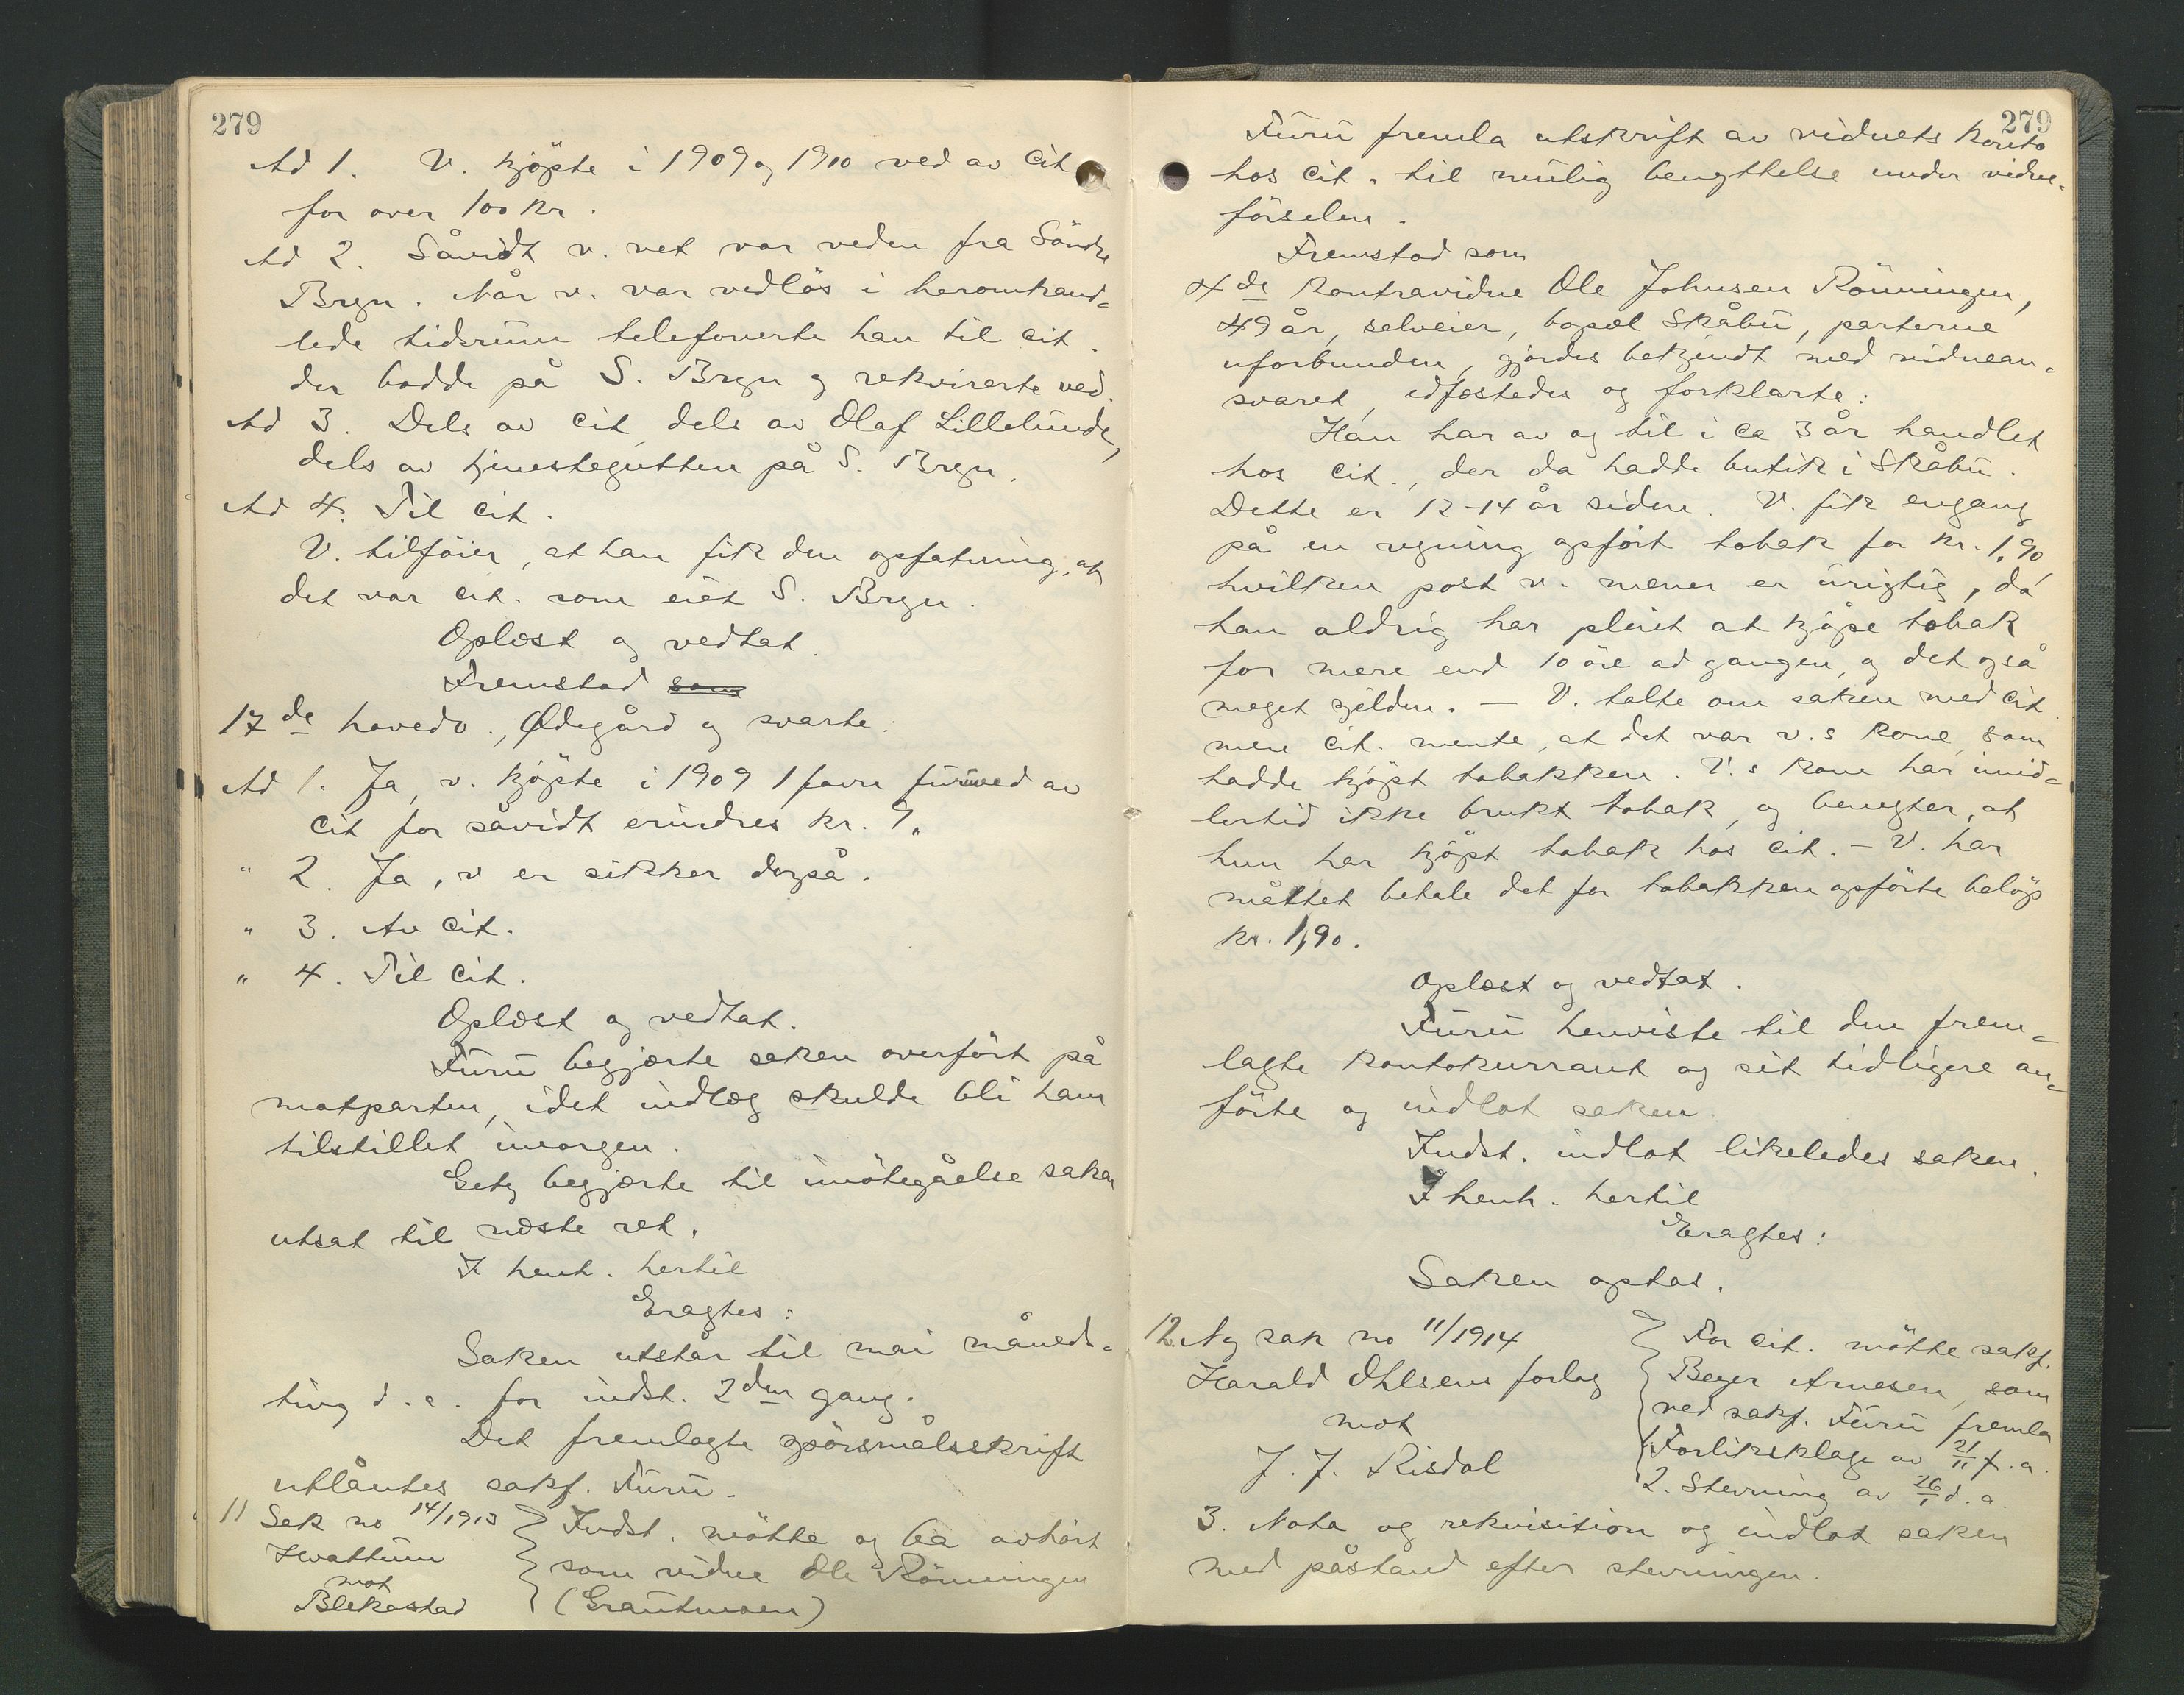 279
Ad 1. V. kjöpte i 1909 og 1910 ved av Cit.
for over 100 kr.
Ad 2. Såvidt v. vet var veden fra Söndre
Bryn. Når v. var vedlös i heromhand-
lede tidsrum telefonerte han til cit.
der bodde på S. Bryn og rekvirerte ved.
Ad 3. Dels av Cit, dels av Olaf Lillelunde,
dels av tjenestegutten på S. Bryn.
Ad 4. Til Cit.
V. tilföier, at han fik den opfatning, at
det var cit. som eiet S. Bryn.
Oplæst og vedtat.
Fremstod som
17de hovedv., Ødegård og svarte:
Ad 1. Ja, v. kjöpte i 1909 1 favn furuved av
Cit for såvidt erindres kr. 9.
" 2. Ja, v er sikker derpå.
" 3. Av Cit.
" 4. Til Cit.
Oplæst og vedtat.
Furu begjærte saken overfört på
motparten, idet indlæg skulde bli ham
tilstillet imorgen.
Getz begjærte til imötegåelse saken
utsat til næste ret.
I henh. hertil
Eragtes:
Saken utstår til mai måneds-
ting d. a. for indst. 2den gang.
Det fremlagte spörsmålsskrift
utlåntes sakf. Furu.
11 Sak no 14/1913
Hvattum
mot
Blekastad
Indst. mötte og ba avhört
som vidne Ole Rönningen
(Grautmoen)
279
Furu fremla utskrift av vidnets konto
hos Cit. til mulig benyttelse under vidne-
förselen.
Fremstod som
4de kontravidne Ole Johnsen Rönningen,
49 år, selveier, bopæl Skåbu, parterne
uforbunden, gjordes bekjendt med vidnean-
svaret, edfæstedes og forklarte:
Han har av og til i ca 3 år handlet
hos Cit., der da hadde butik i Skåbu.
Dette er 12-14 år siden. V. fik engang
på en regning opfört tobak for kr. 1,90,
hvilken post v. mener er urigtig, da
han aldrig har pleiet at kjöpe tobak
for mere end 10 öre ad gangen, og det også
meget sjelden. — V. talte om saken med Cit.
men Cit. mente, at det var v.s kone, som
hadde kjöpt tobakken. V.s kone har imid-
lertid ikke brukt tobak, og benegter, at
hun har kjöpt tobak hos Cit. — V. har
måttet betale det for tobakken opförte belöp
kr. 1,90.
Oplæst og vedtat.
Furu henviste til den frem-
lagte kontokurrant og sit tidligere an-
förte og indlot saken.
Indst. indlot likeledes saken.
I henh. hertil
Eragtes:
Saken optas.
12 Ny sak no 11/1914
Harald Ohlsens forlag
mot
J. J. Risdal
For Cit. mötte sakf.
Beyer Arnesen, som
ved sakf. Furu fremla
1. Forliksklage av 21/11 f. a.
2. Stevning av 26/1 d. a.
3. Nota og rekvisition og indlot saken
med påstand efter stevningen.